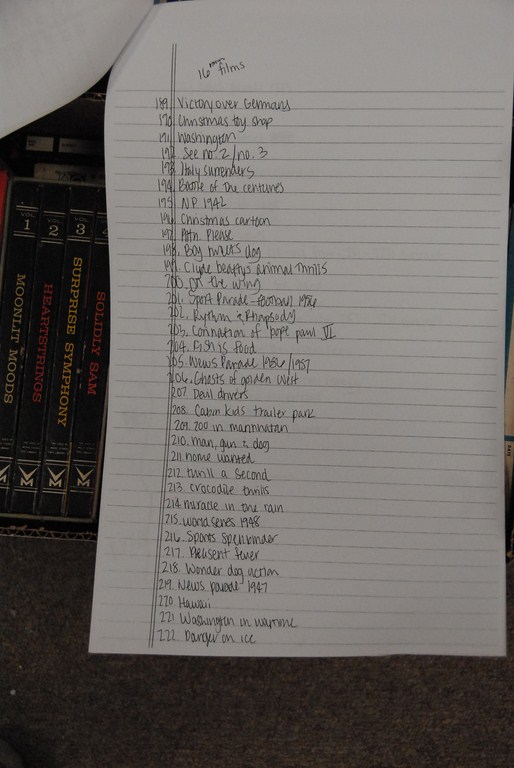 16 mm films
189. Victory over Germany
190. Christmas toy shop
191. Washington
192. See no. 2/no. 3
193. Italy surrenders
194. Battle of the centuries
195. N.P. 1942
196. Christmas cartoon
197. Attn. Please
198. Boy meets dog
199. Clyde beatty's animal thrills
200. On the wing
201. Sport Parade - football 1956
202. Rythm & Rhapsody
203. Connation of pope paul VI
204. Fish is food
205. News Parade 1936/1937
206. Ghosts of golden west
207. Devil drivers
208. Cabin kids trailer park
209. zoo in manhattan
210. man, gun & dog
211. home wanted
212. thrill a second
213. crocodile thrills
214. miracle in the rain
215. world series 1948
216. Sports Spellbinder
217. Pheasent fever
218. Wonder dog action
219. News parade 1947
220. Hawaii
221. Washington in wartime
222. Danger on ice
VOL. 1 MOONLIT MOODS
VOL. 2 HEARTSTRINGS
VOL. 3 SURPRISE SYMPHONY
4 SOLIDLY SAM